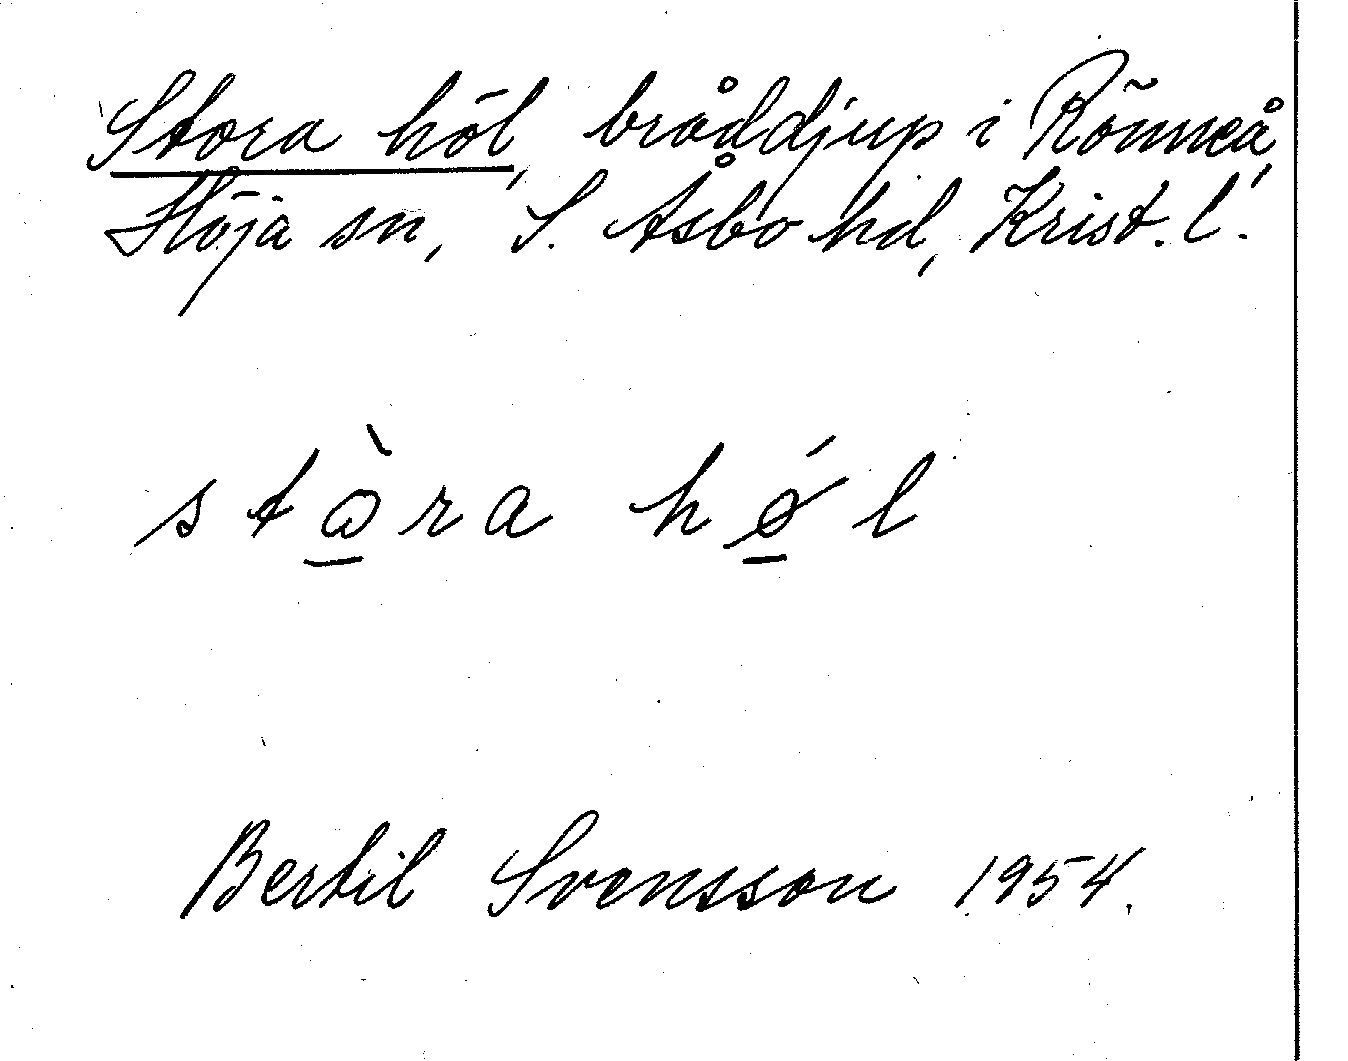 Stora höl, bråddjup i Rönneå,
Höja sn, S. Åsbo hd, Krist. l.
stὼ̱ra hǿ̱l
Bertil Svensson 1954.